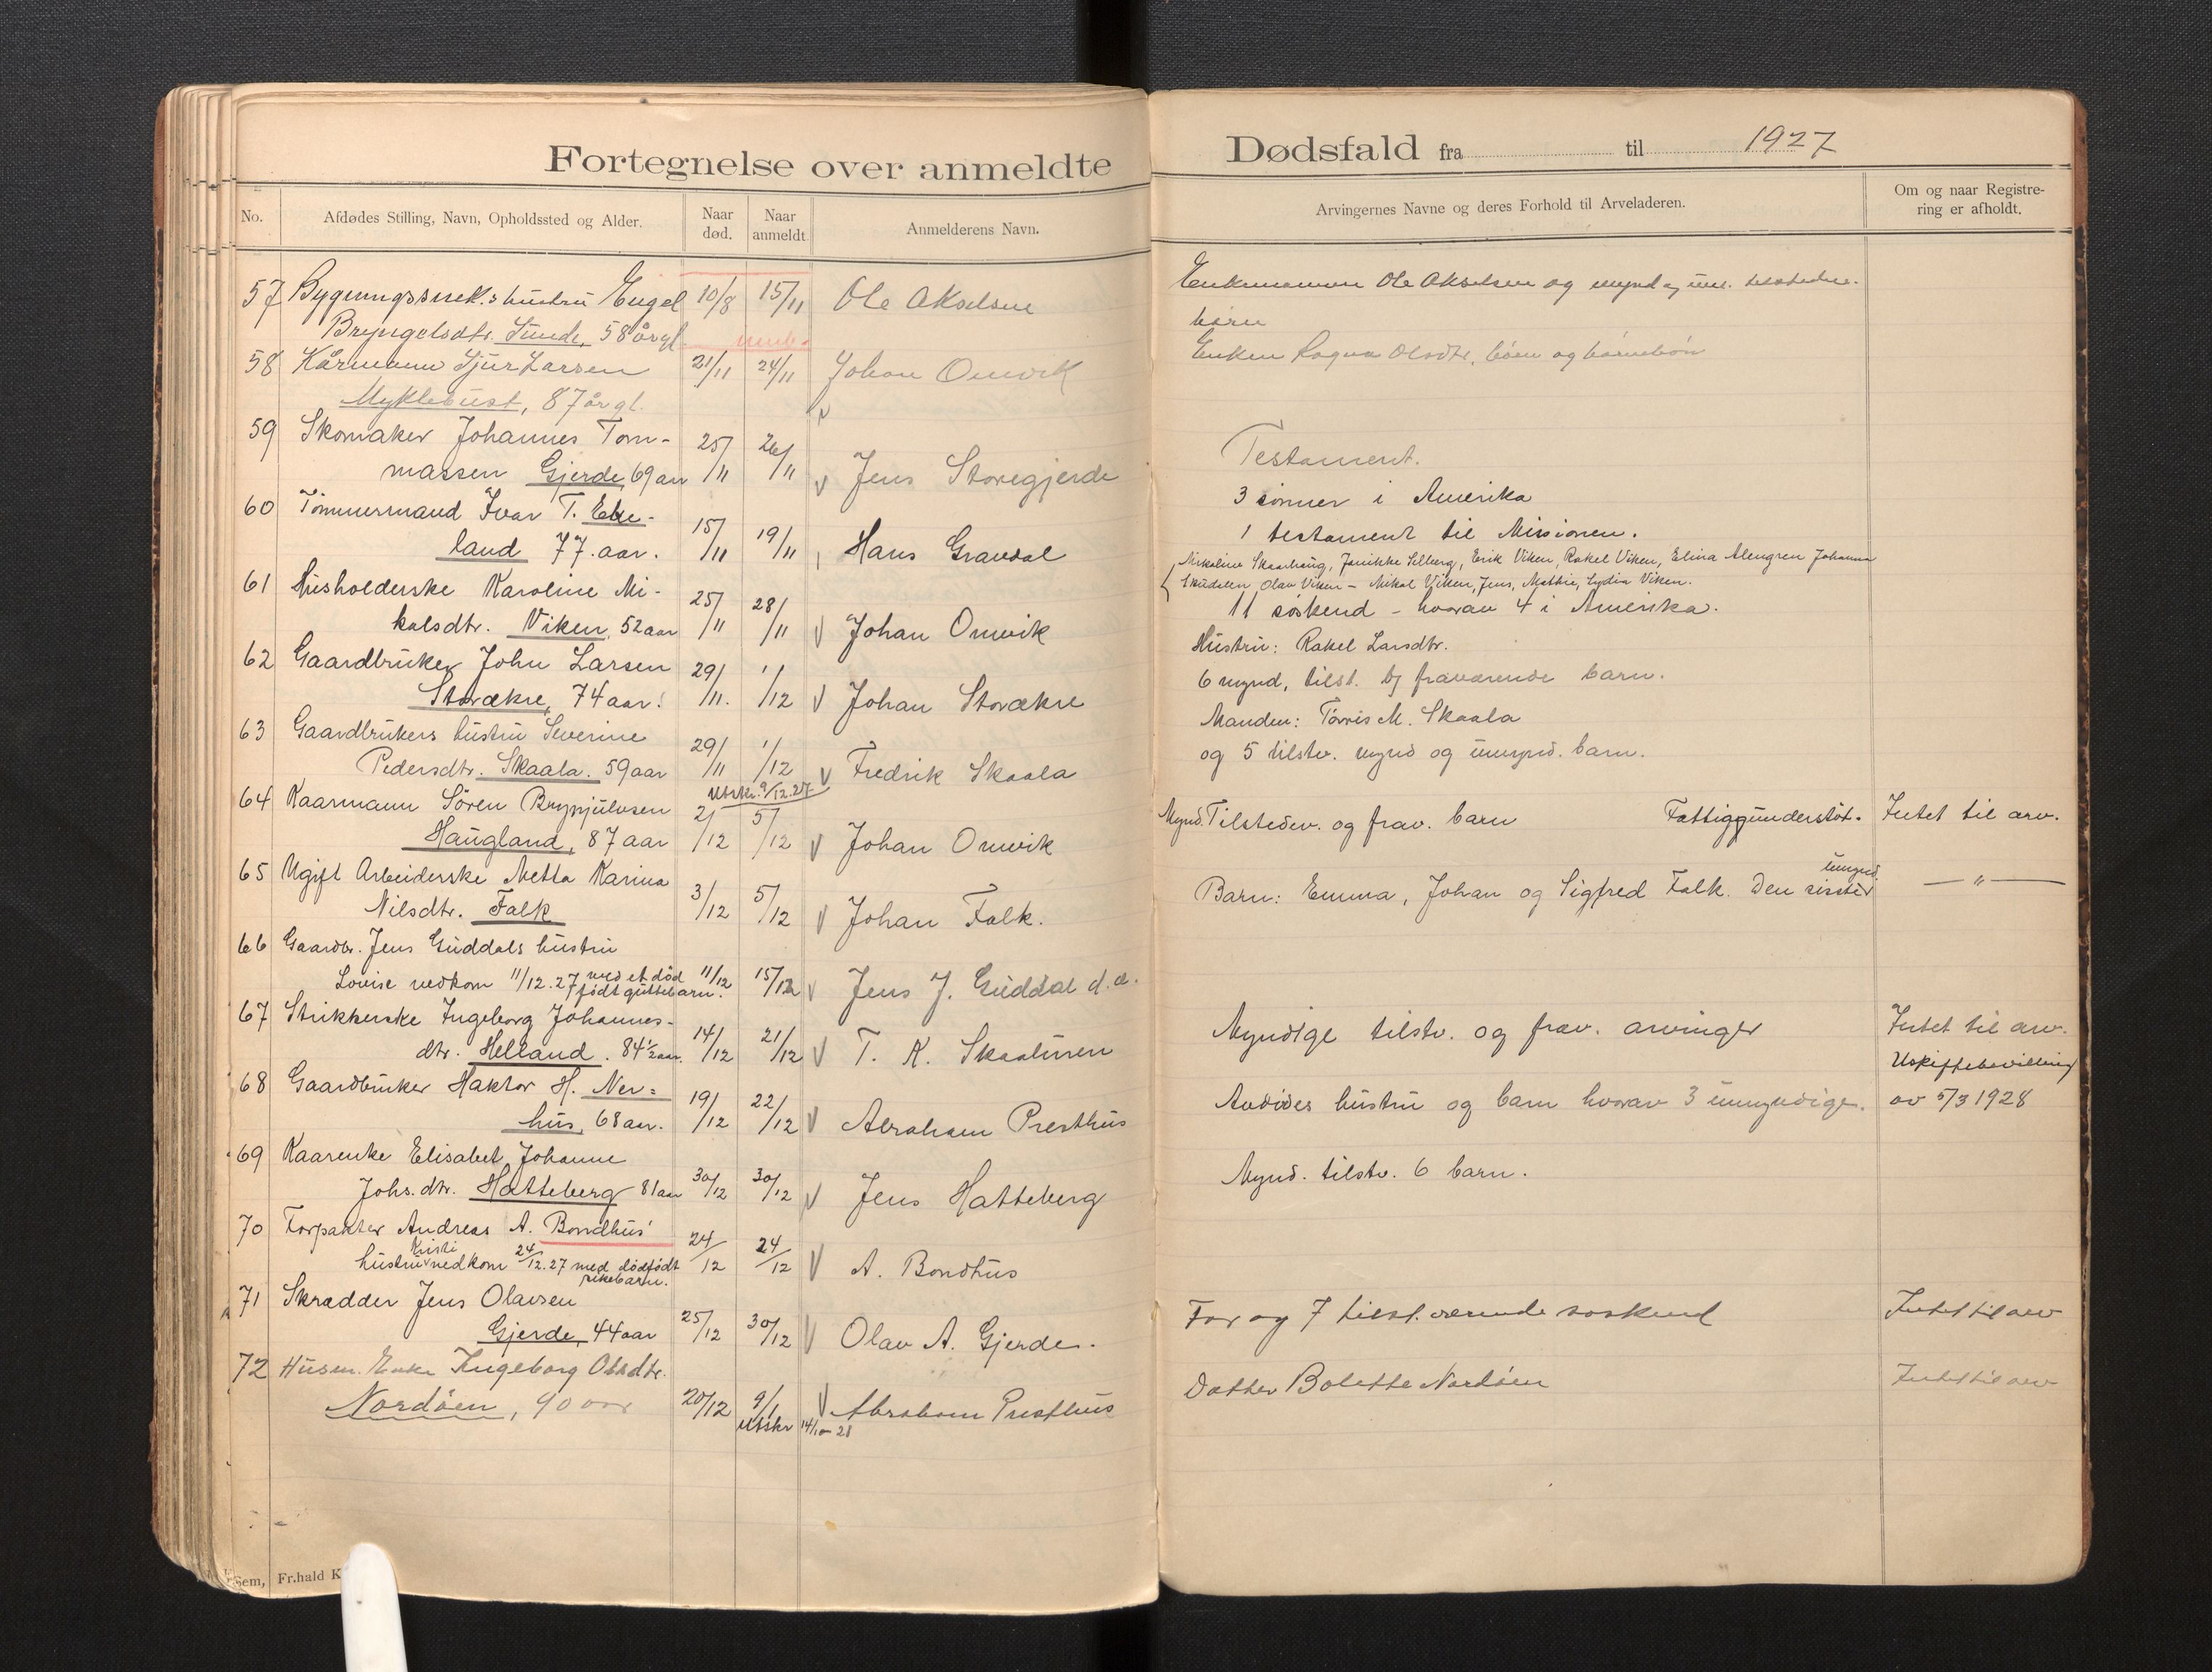 Fortegnelse over anmeldte
Dødsfald fra til 1927
No.
Afdødes Stilling, Navn, Opholdssted og Alder.
Naar død.
Naar anmeldt
Anmelderens Navn.
Arvingernes Navne og deres Forhold til Arveladeren.
Om og naar Registre-
ring er afholdt.
57 Bygningssnek.s hustru Engel 10/8 15/11 Ole Akselsen
Enkemannen Ole Akselsen og mynd og
Bryngelsdtr. Sunde, 58 år gl.
børn
58 Kårmann Sjur Larsen 21/11 24/11 Johan Omvik
Enken Ragna Olsdtr. børn og barnebørn
Myklebust, 87 år gl.
59 Skomaker Johannes Tom-
massen Gjerde, 69 aar 25/11 26/11 V Jens Storegjerde
Testament.
3 sönner i Amerika
60 Tömmermand Ivar T. Eke-
land 77 aar. 15/11 19/11 Hans Gravdal
1 testament til Missionen.
Mikaline Skaarhaug, Janikke Selberg, Erik Viken, Rakel Viken, Elina Almgren Johanna
Skudalen Olav Viken - Mikal Viken, Jens, Mattie, Lydia Viken.
61 Husholderske Karoline Mi-
kalsdtr. Viken, 52 aar 25/11 28/11 V Johan Omvik
11 söskend - hvorav 4 i Amerika.
62 Gaardbruker John Larsen
Storækre, 74 aar. 29/11. 1/12 V Johan Storækre
Hustru: Rakel Larsdtr.
6 mynd, tilst. og fraværende barn.
63 Gaardbrukers hustru Severine
Pedersdtr. Skaala. 59 aar 29/11 1/12 V Fredrik Skaala
Manden: Törris M. Skaala
og 5 tilstv. mynd og umynd. barn.
Utskr. 9/12.27
64 Kaarmann Sören Brynjulvsen
Haugland, 87 aar 2/12 5/12 V Johan Omvik
Mynd. Tilstedev. og frav. barn Fattigunderstöt. Intet til arv.
65 Ugift Arbeiderske Metta Karina
Nilsdtr. Falk 3/12 5/12 V Johan Falk.
umynd.
Barn: Emma, Johan og Sigfred Falk. Den sister — " —
66 Gaardbr. Jens Guddals hustru
Lovise nedkom 11/12.27 med et död
födt guttebarn. 11/12 15/12 V Jens J. Guddal d.a.
67 Strikkerske Ingeborg Johannes-
dtr. Helland. 84 1/2 aar. 14/12 21/12 V T. K. Skaaluren
Myndige tilstv. og frav. arvinger Intet til arv.
68 Gaardbruker Haktor H. Ner=
hus, 68 aar. 19/12 22/12 V Abraham Presthus
Avdödes hustru og barn hvorav 3 umyndige.
Uskiftebevilling
av 5/3 1928
69 Kaarenke Elisabet Johanne
Johs.dtr. Hatteberg 81 aar 30/12 30/12 V Jens Hatteberg
Mynd. tilstv. 6 barn.
70 Forpakter Andreas A. Bondhus'
Kristi
hustru nedkom 24/12.27 med dödfödt
pikebarn. 24/12 24/12 V A. Bondhus
71 Skrædder Jens Olavsen
Gjerde, 44 aar 25/12 30/12 V Olav A. Gjerde.
Far og 7 tilst.værende söskend Intet til arv
72 Husm. Enke Ingeborg Olsdtr.
Nordöen, 90 aar 20/12 9/1 V Abraham Presthus
Utskr 14/1 - 28
Datter Bolette Nordöen Intet til arv
Sem, Fr.hald